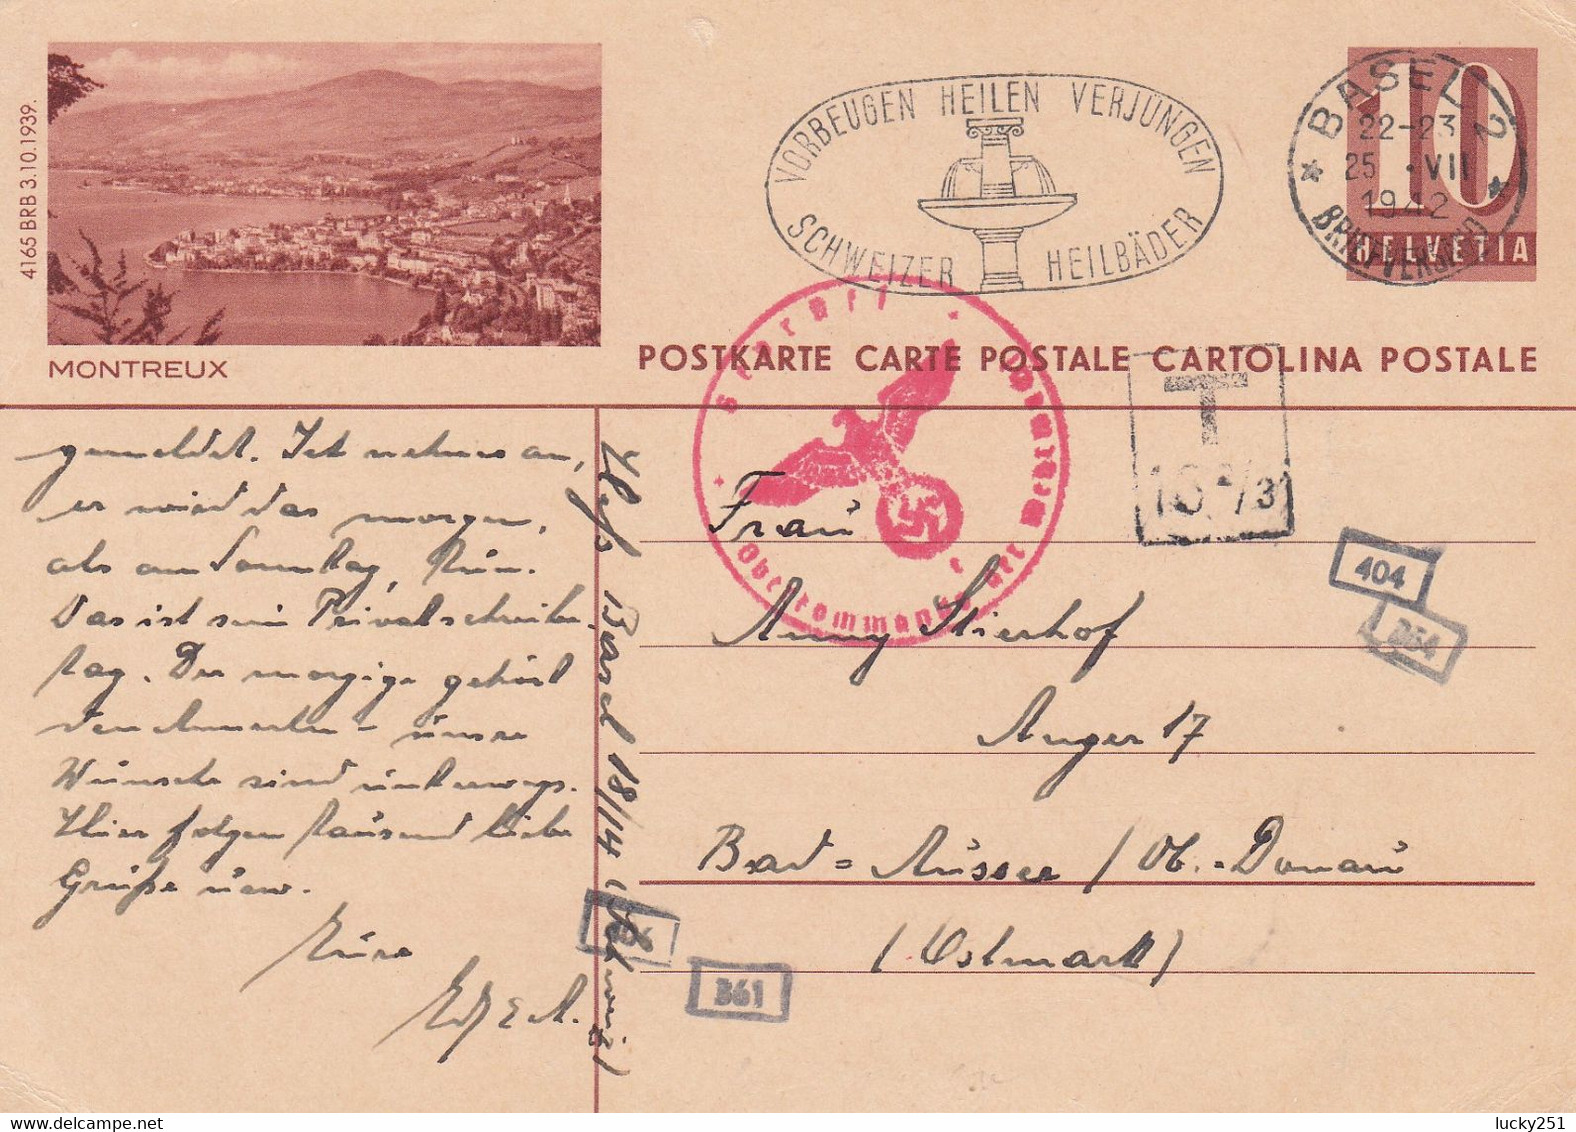 4165 BRB 3.10.1939.
MONTREUX
VORBEUGEN HEILEN VERJÜNGEN
SCHWEIZER HEILBÄDER
BASEL 2
22-23
25.VII
1942
BRIEFVERSAND
10
HELVETIA
POSTKARTE CARTE POSTALE CARTOLINA POSTALE
Oberkommando der Wehrmacht
T
16 2/3
404
361
gemeldet. Ich nehme an,
er wird das morgen,
als am Sonntag, tun.
Das ist sein Privatschreibe-
tag. Der morgige gehört
den
Wünsche sind unterwegs.
Hier folgen tausend liebe
Grüße usw.
Eure
Basel 18/14 (Schweiz)
Frau
Anny Stierhof
Anger 17
Bad-Aussee / Ob.-Donau
(Ostmark)
lucky251